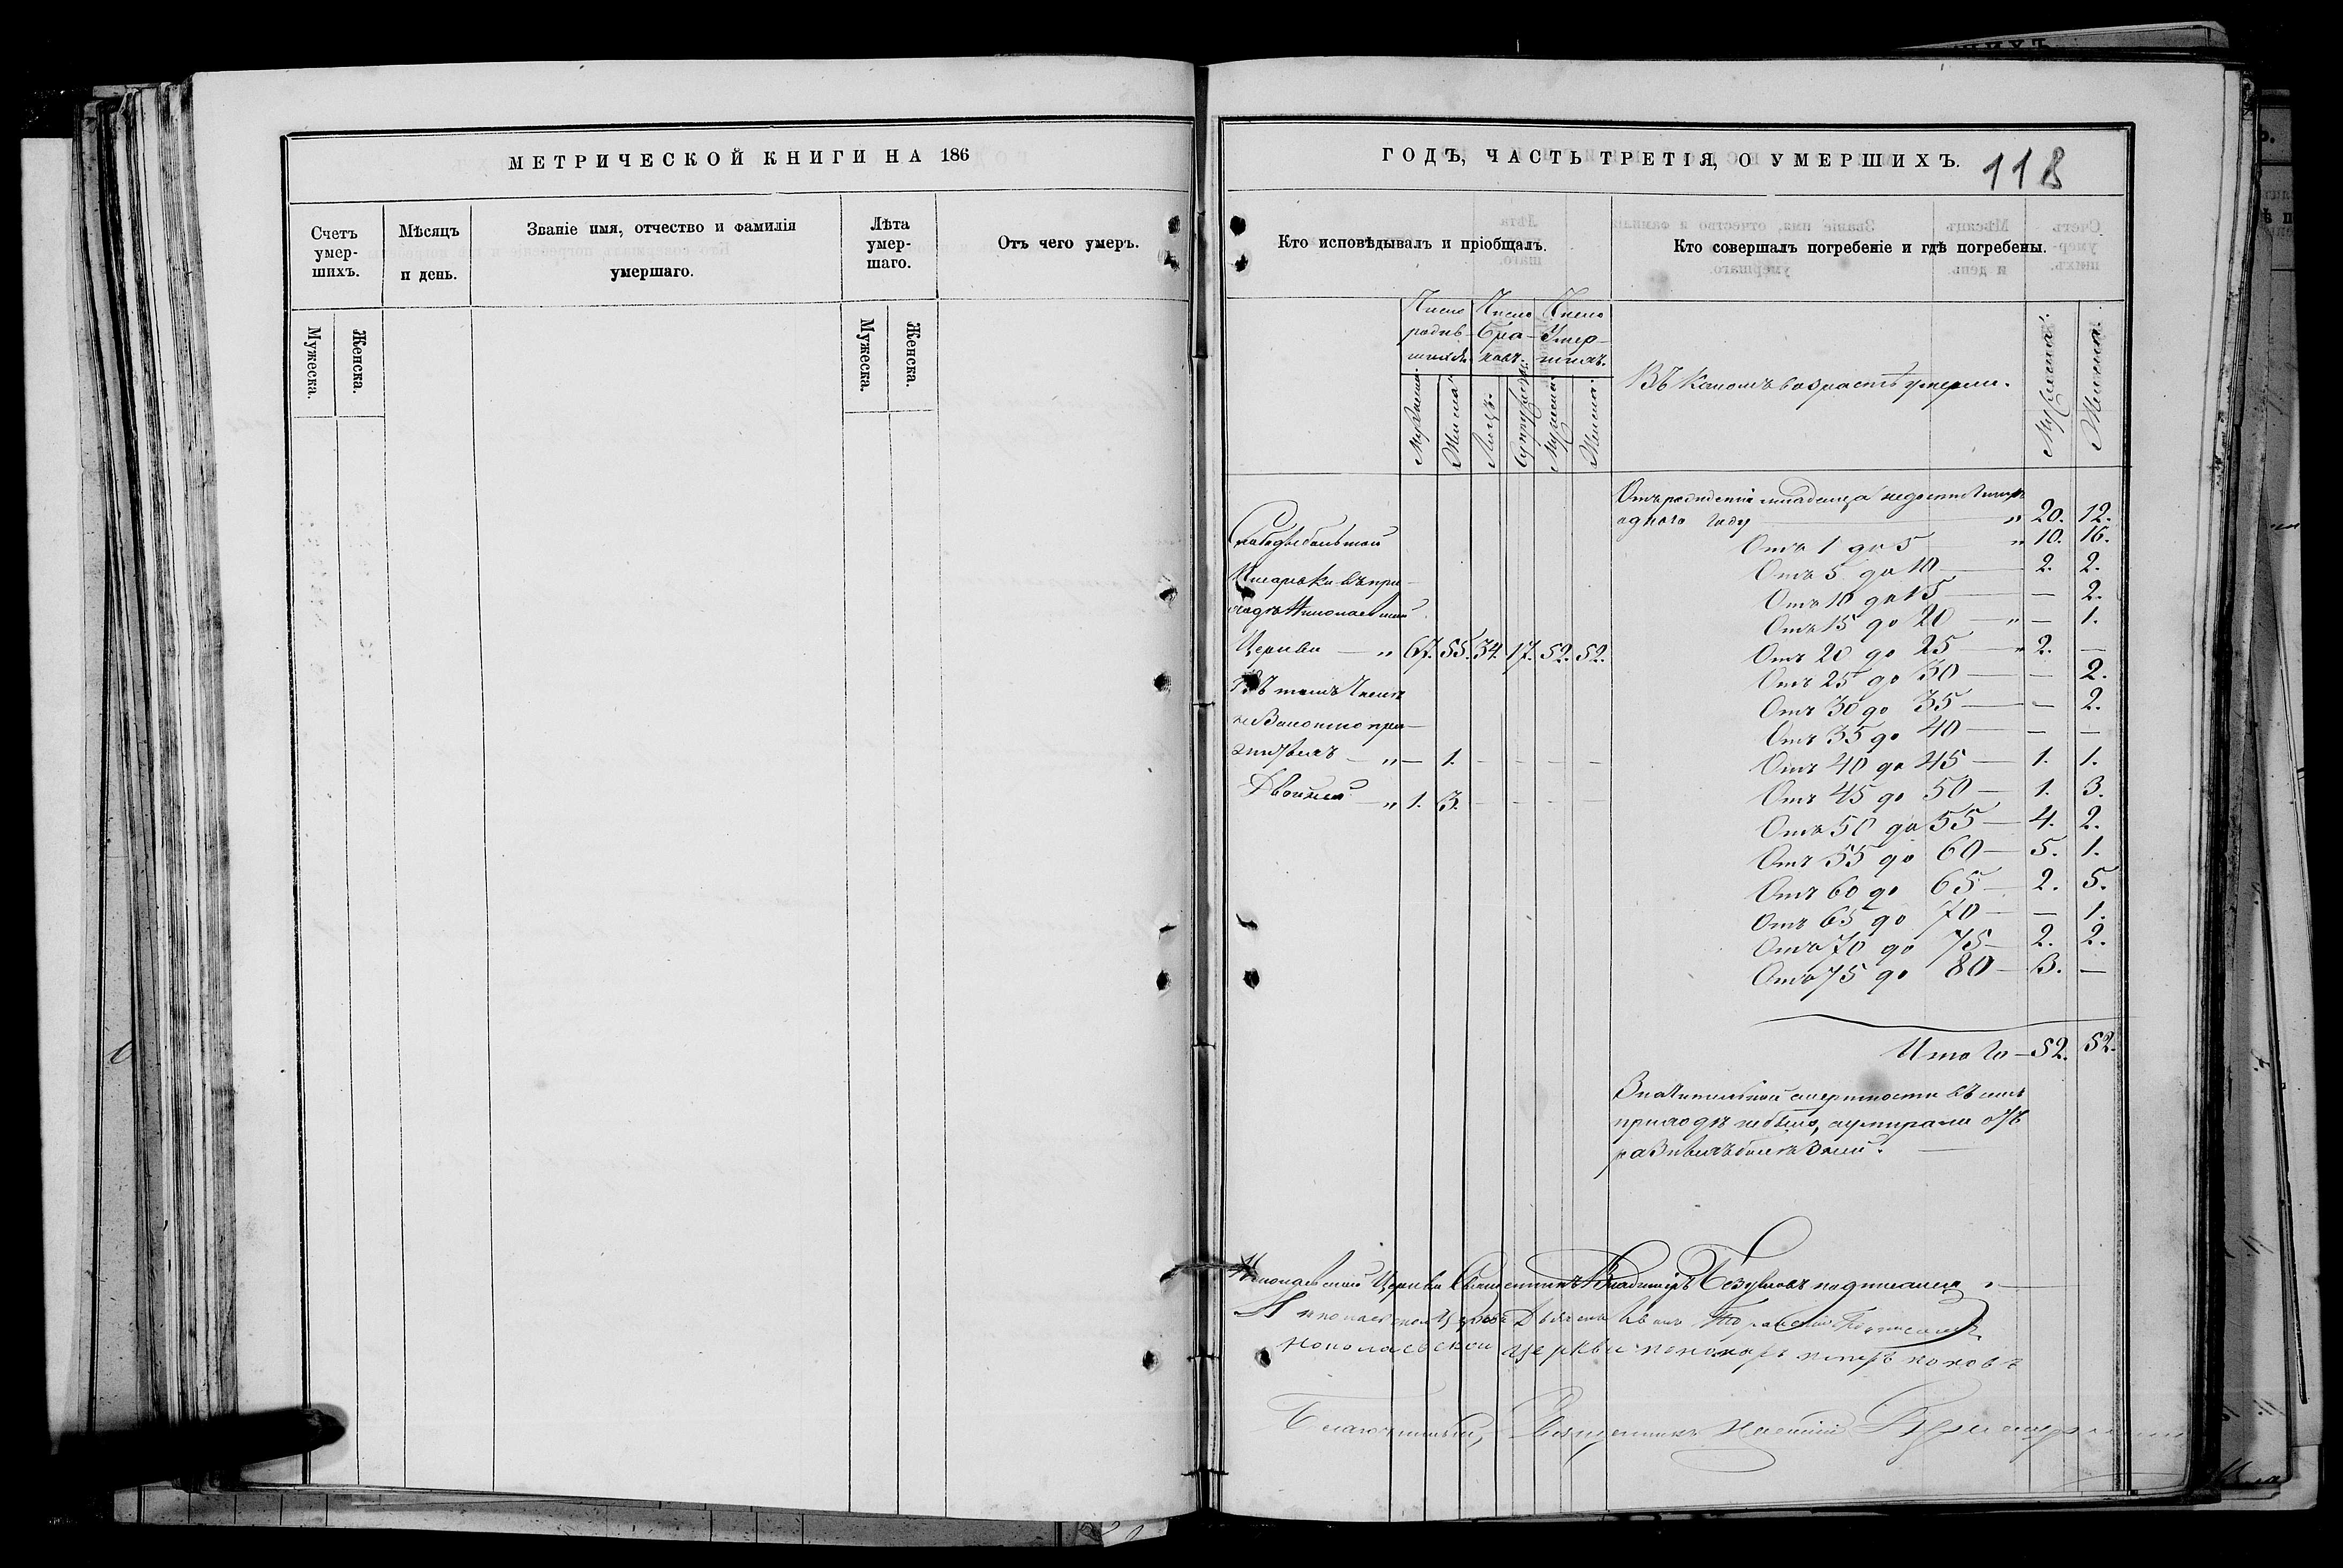 МЕТРИЧЕСКОЙ КНИГИ НА 186
Счетъ умер-шихъ.
Мѣсяцъ и день.
Званіе имя, отчество и фамилія умершаго.
Лѣта умер-шаго.
Отъ чего умеръ.
Мужеска.
Женска.
Мужеска.
Женска.
ГОДЪ, ЧАСТЬ ТРЕТІЯ, О УМЕРШИХЪ.
118
Кто исповѣдывалъ и пріобщалъ.
Кто совершалъ погребеніе и гдѣ погребены.
Число родив-шихся.
Число Бра-ковъ.
Число Умер-шихъ.
Мужеска.
Женска.
Лицъ.
Супружествъ.
Мужеска.
Женска.
Въ какомъ возрастѣ умерли.
Мужеска.
Женска.
Слободы большой
Писаревки въ при-
ходѣ Николаевской
Церкви — „ 67. 55. 34. 17. 52. 52.
Въ томъ числѣ
незаконно при-
житыхъ — „ — 1. - - - -
Двойней — „ 1. 3. - - - -
Отъ рожденія младенца недостигшихъ
одного году — „ 20. 12.
Отъ 1 до 5 „ 10. 16.
Отъ 5 до 10 — 2. 2.
Отъ 10 до 15 — — 2.
Отъ 15 до 20 — „ — 1.
Отъ 20 до 25 — „ 2. —
Отъ 25 до 30 — — 2.
Отъ 30 до 35 — — 2.
Отъ 35 до 40 — — —
Отъ 40 до 45 — 1. 1.
Отъ 45 до 50 — 1. 3.
Отъ 50 до 55 — 4. 2.
Отъ 55 до 60 — 5. 1.
Отъ 60 до 65 — 2. 5.
Отъ 65 до 70 — — 1.
Отъ 70 до 75 — 2. 2.
Отъ 75 до 80 — 3. —
Итого — 52. 52.
Значительной смертности въ семъ
приходѣ небыло, а умирали отъ
разныхъ болѣзней.
Николаевской Церкви Священникъ Владиміръ подписался.
Николаевской Церкви Дьячекъ Иванъ Подписался
Николаевской церкви пономарь петръ поповъ
Благочинный, Священникъ